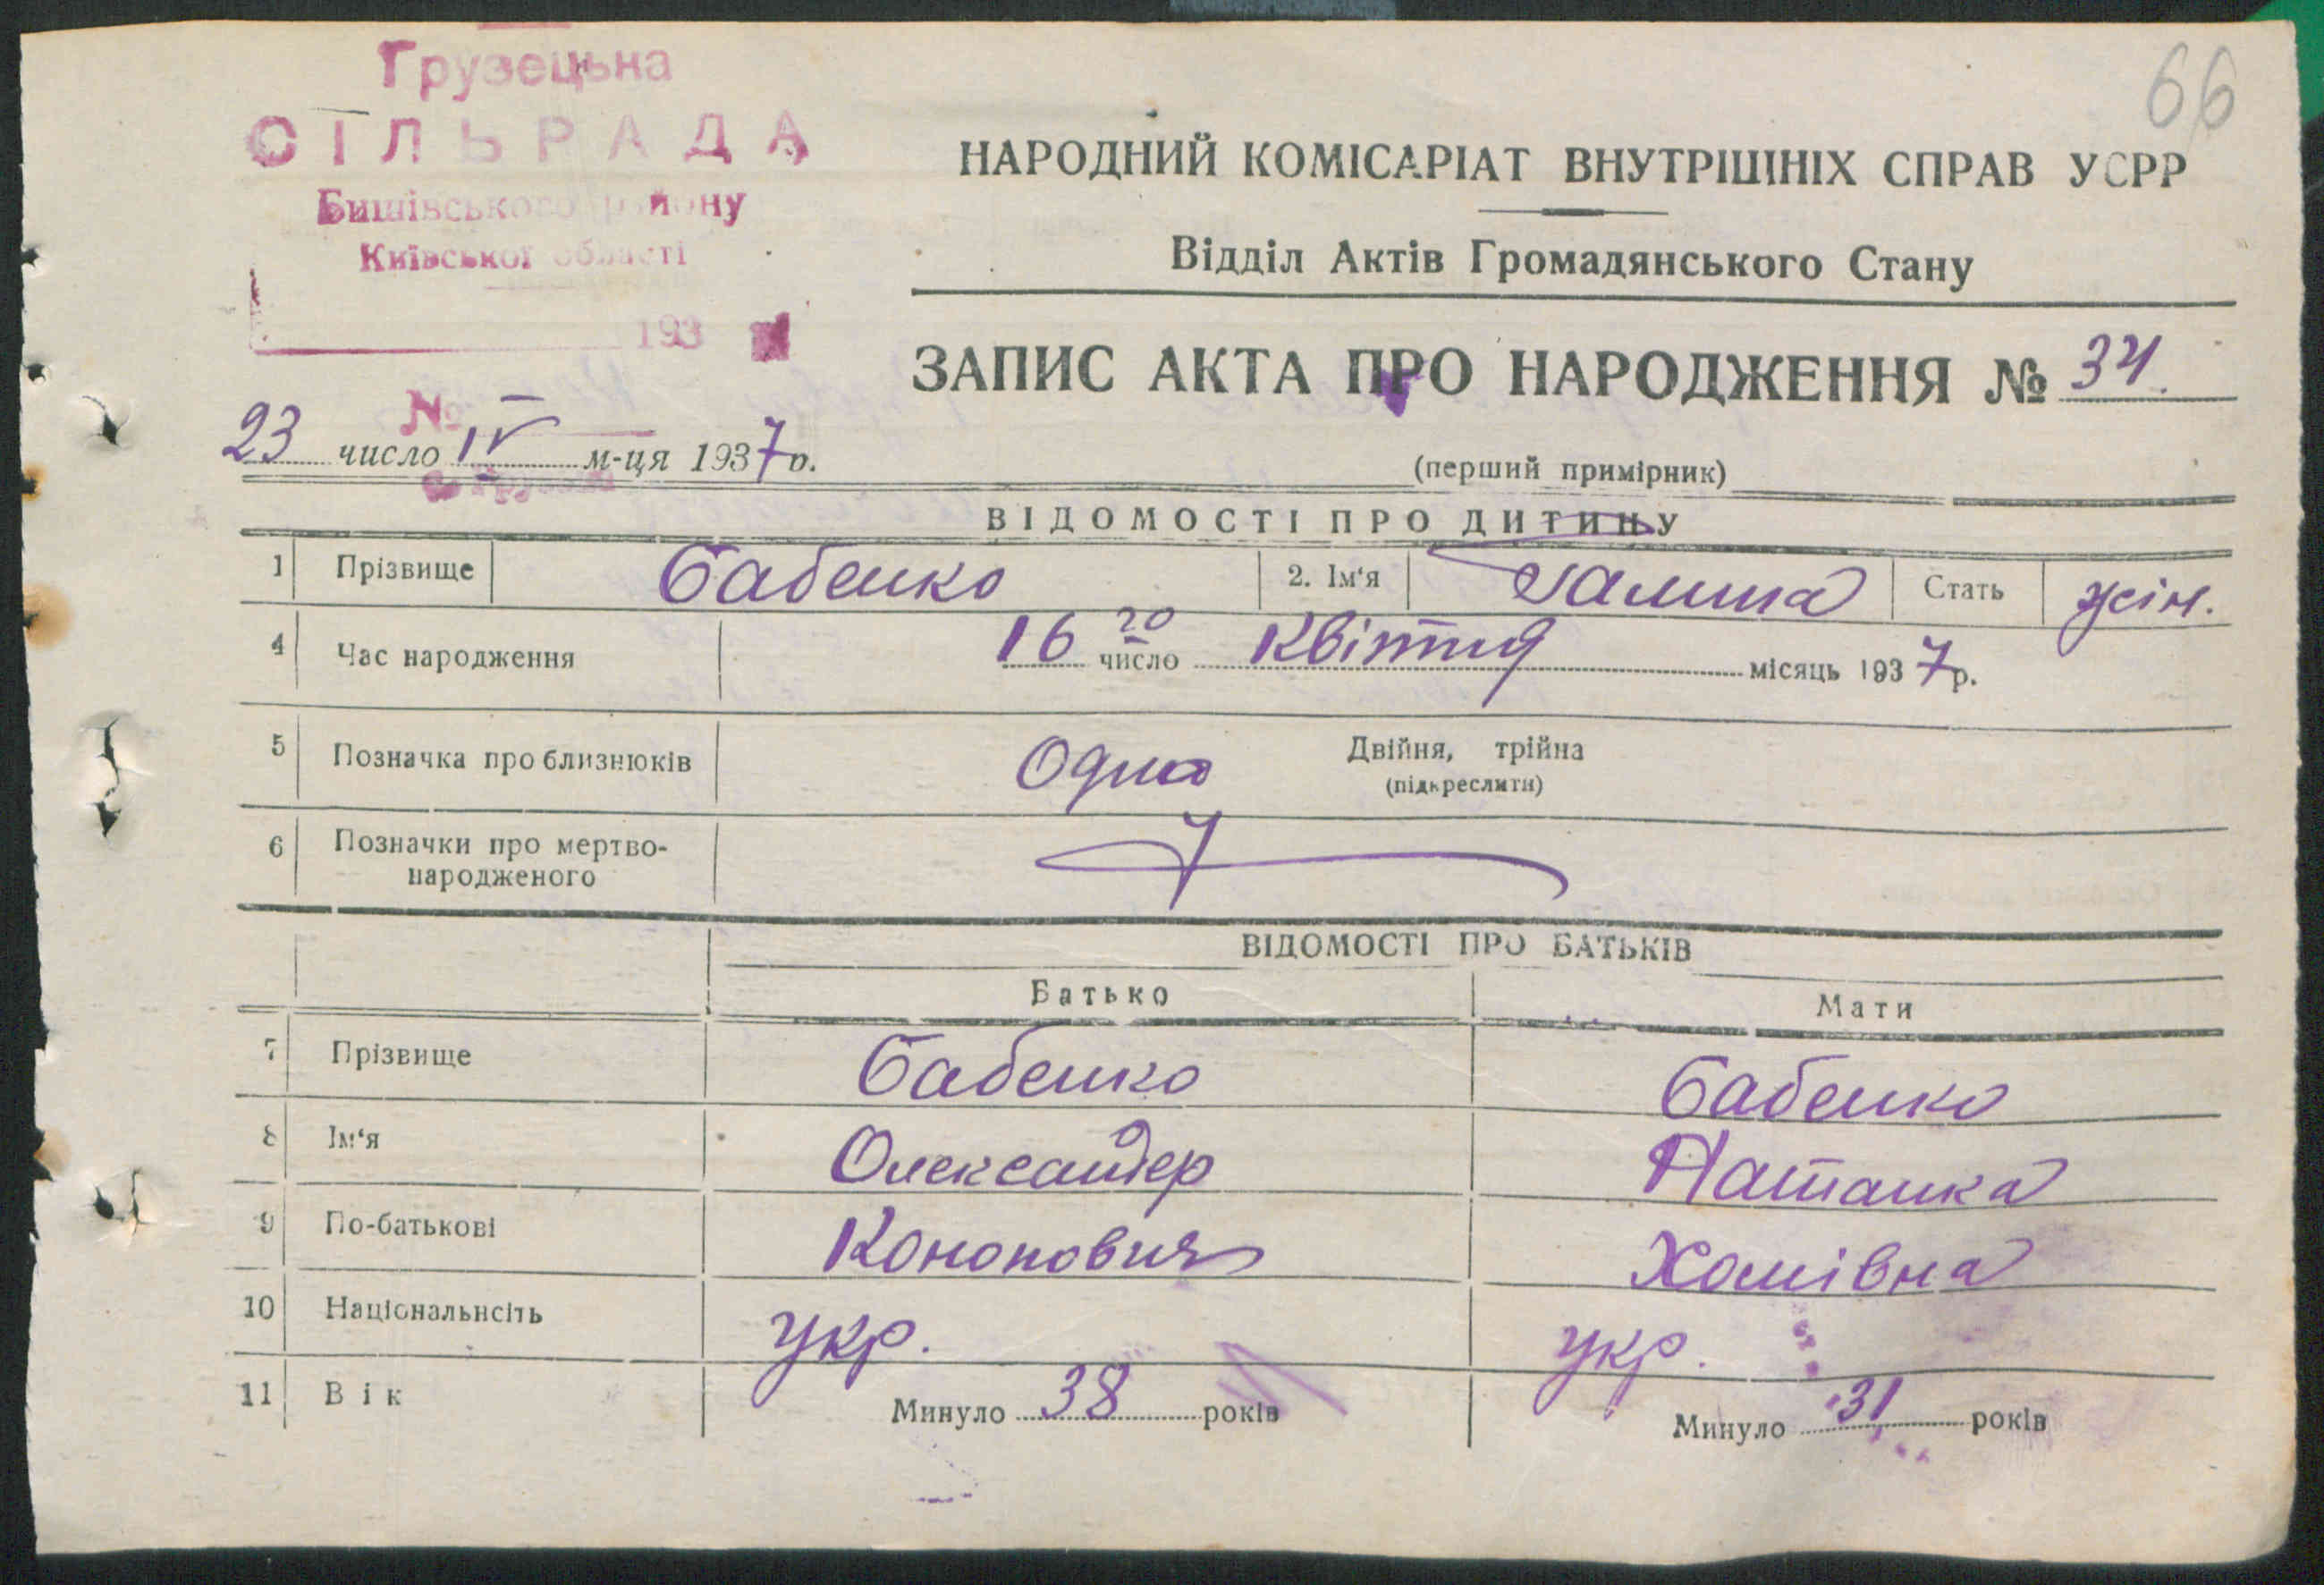 66
Грузецька
СІЛЬРАДА
Бишівського району
Київської області
193
№
НАРОДНИЙ КОМІСАРІАТ ВНУТРІШНІХ СПРАВ УСРР
Відділ Актів Громадянського Стану
ЗАПИС АКТА ПРО НАРОДЖЕННЯ № 34.
23 число IV м-ця 1937 р.
(перший примірник)
ВІДОМОСТІ ПРО ДИТИНУ
1 Прізвище Бабенко 2. Ім‘я Галина Стать жін.
4 Час народження 16 го число Квітня місяць 1937 р.
5 Позначка про близнюків Одна Двійня, трійна
(підкреслити)
6 Позначки про мертво-
народженого
ВІДОМОСТІ ПРО БАТЬКІВ
Батько Мати
7 Прізвище Бабенко Бабенко
8 Ім‘я Олександер Наталка
9 По-батькові Кононович Хомівна
10 Національнсіть укр. укр.
11 Вік Минуло 38 років Минуло 31 років